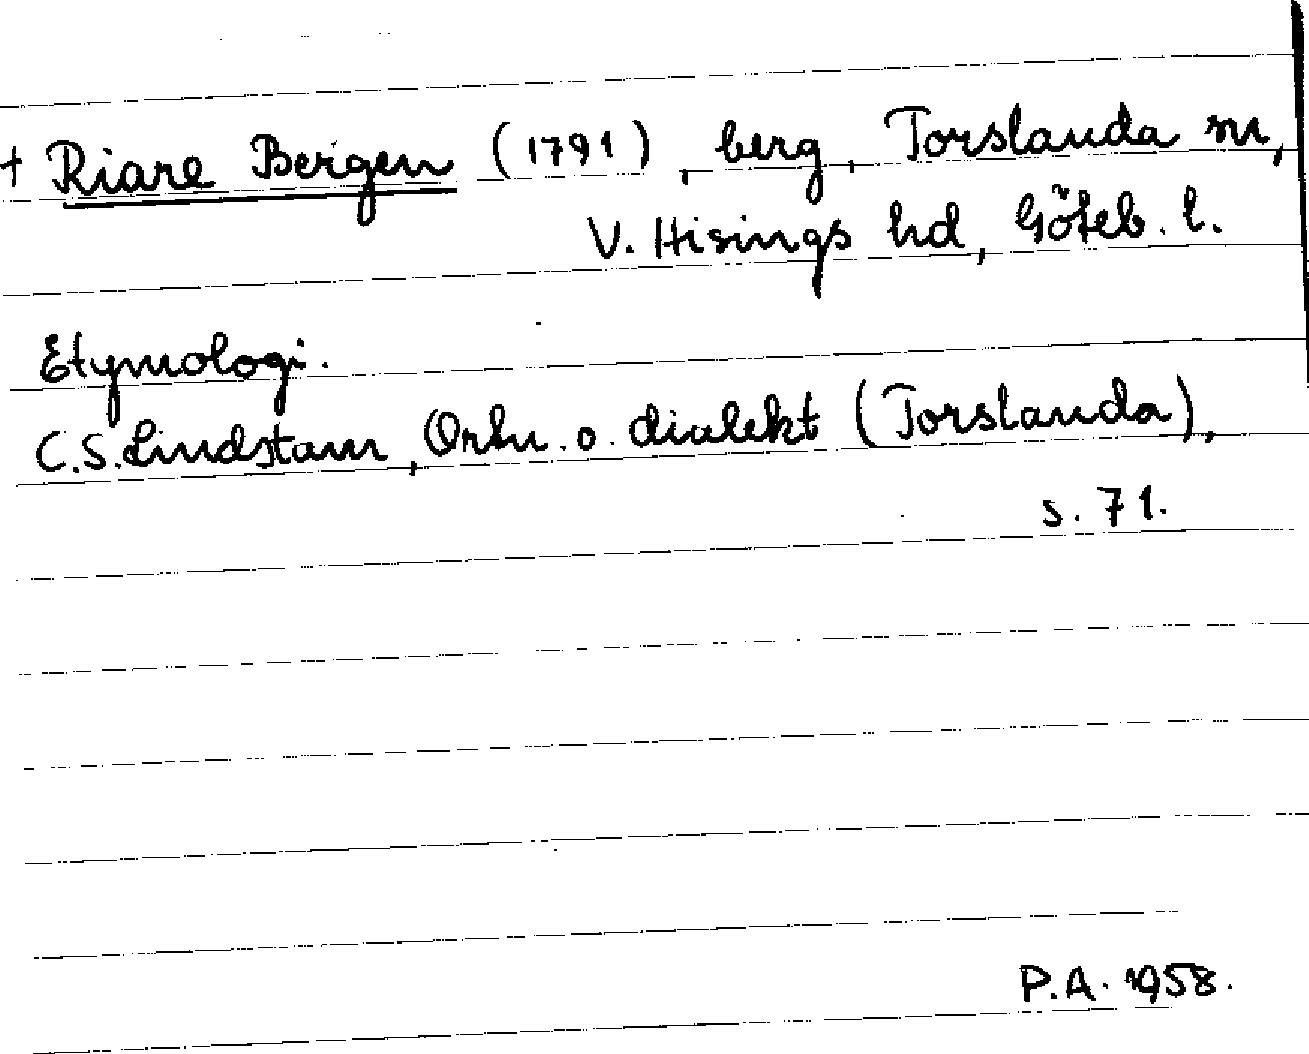 † Riare Bergen (1791), berg, Torslanda sn,
V. Hisings hd, Göteb. l.
Etymologi.
C.S. Lindstam, Ortn. o. dialekt (Torslanda),
s. 71.
P.A. 1958.